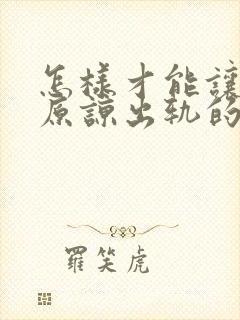 怎樣才能讓
原諒出軌的
羅笑虎